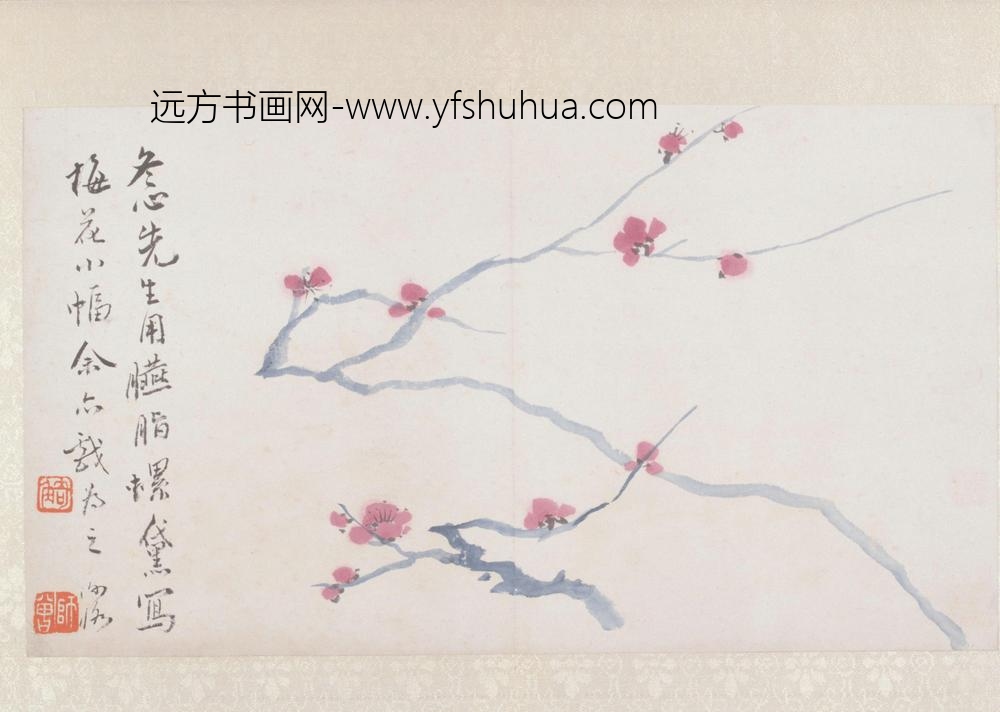 远方书画网-www.yfshuhua.com
冬心先生用臙脂螺黛寫
梅花小幅余亦戲為之 衡恪
師曾